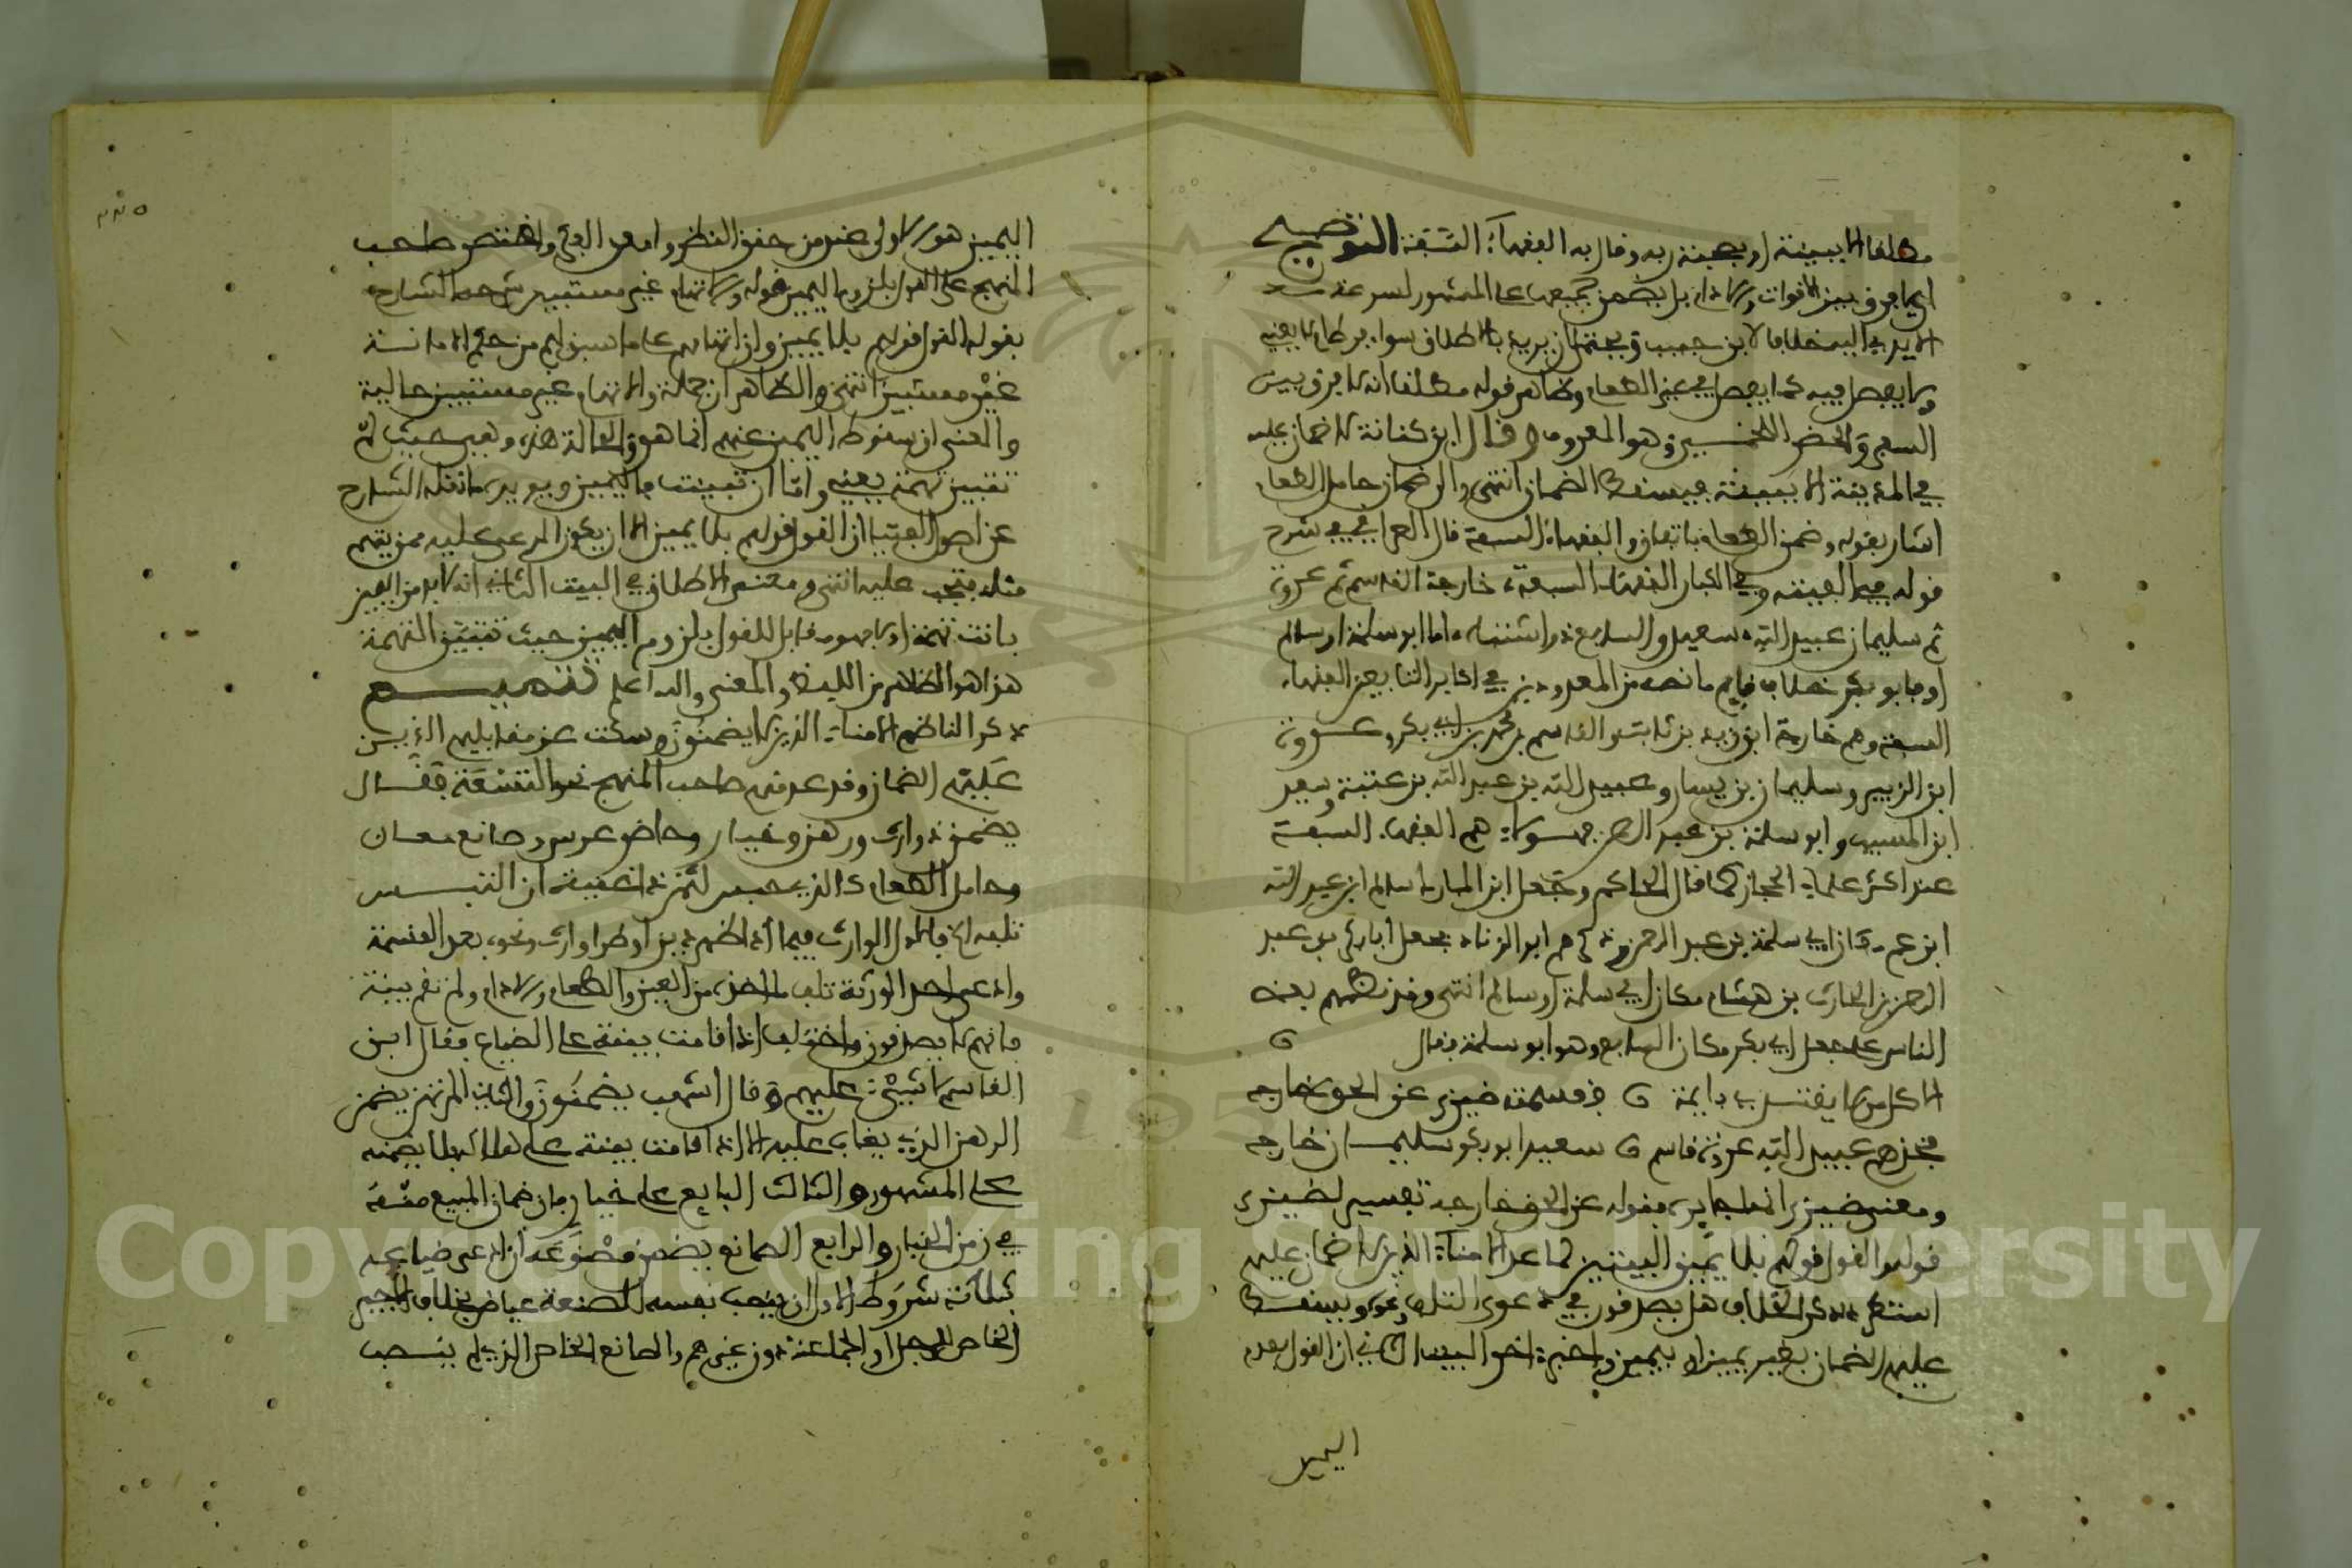 مطلقا الا ببينة او ببينة ربه وقال به الفقهاء السبعة التوضيح
اي لا فرق بين الاقوات والادام بل يضمن جميعها على المشهور لسرعة
الايدي اليه خلافا لابن حبيب ويحتمل ان يريد بالاطلاق سواء
ولا يفصل فيه كما يفصل في غير الطعام وظاهر قوله مطلقا انه لا فرق بين
السفر والحضر اللخمي وهو المعروف وقال ابن كنانة لا ضمان عليه
في المدينة الا ببينة فيسقط الضمان انتهى والى ضمان حامل الطعام
اشار بقوله وضمن الطعام باتفاق والفقهاء السبعة قال العراقي في شرح
قوله في الفيته وفي الكبار الفقهاء السبعة خارجة القاسم ثم عروة
ثم سليمان عبيد الله سعيد والسابع ذو اشتباه اما ابو سلمة او سالم
او فابو بكر خلاف قايم ما نصه من المعدودين في اكابر التابعين الفقهاء
السبعة وهم خارجة ابن زيد بن ثابت والقاسم بن محمد بن ابي بكر وعروة
ابن الزبير وسليمان بن يسار وعبيد الله بن عبد الله بن عتبة وسعيد
ابن المسيب وابو سلمة بن عبد الرحمن فهؤلاء هم الفقهاء السبعة
عند اكثر علماء الحجاز كما قال الحاكم وجعل ابن المبارك سالم ابن عبد الله
ابن عمر مكان ابي سلمة بن عبد الرحمن وذكرهم ابو الزناد فجعل ابا بكر بن عبد
الرحمن بن الحارث بن هشام مكان ابي سلمة او سالم انتهى وقد نظمهم بعض
الناس على جعل ابي بكر مكان السابع وهو ابو سلمة فقال
الا كل من لا يقتدي بايمة فقسمته ضيزى عن الحق خارجه
فخذهم عبيد الله عروة قاسم سعيد ابو بكر سليمان خارجه
ومعنى ضيزى انها جايرة فقوله عن الحق خارجة تفسير لضيزى
قوله والقول قولهم بلا يمين البيتين لما عد الامناء الذين لا ضمان عليهم
استطرد ذكر الخلاف هل يصدقون في دعوى التلف ونحوه ويسقط
عليهم الضمان بغير يمين او بيمين واخبر اخر البيت الثاني ان القول بعدم
اليمين
اليمين هو الاولى عند من حقق النظر وامعن الفكر واختصر صاحب
المنهج على القول بلزوم اليمين قوله والاتهام غير مستبين شرحه الشارح
بقوله القول قولهم بلا يمين وان اتهامهم على ما سبق لهم من حكم الامانة
غير مستبين انتهى والظاهر ان جملة والاتهام غير مستبين حالية
والمعنى ان سقوط اليمين عنهم انما هو في الحالة هذه وهي حيث لم
تتبين تهمة بعينه واما ان تبينت فاليمين ويويده ما نقله الشارح
عن اصول الفتيا ان القول قولهم بلا يمين الا ان يكون المدعى عليه ممن يتهم
مثله فتجب عليه انتهى ومقتضى الاطلاق في البيت الثاني انه لا بد من اليمين
بانت تهمة او لا فهو مقابل للقول بلزوم اليمين حيث تتبين التهمة
هذا هو الظاهر من اللفظ والمعنى والله اعلم تتميم
ذكر الناظم الامناء الذين لا يضمنون وسكت عن مقابليهم الذين
عليهم الضمان وقد عد منهم صاحب المنهج نحو التسعة فقال
يضمن ذو ارث ورهن وخيار وحاضن عرس وصانع معار
وحامل الطعام كالذي حبس لثمن
تلفه الخ فالاول الوارث فيما اذا ظهر دين او طرا وارث ونحوه بعد القسمة
وادعى احد الورثة تلف ما اخذ من العين والطعام والادام ولم تقم بينة
فانهم لا يصدقون واختلف اذا قامت بينة على الضياع فقال ابن
القاسم لا شيء عليهم وقال اشهب يضمنون والثاني المرتهن يضمن
الرهن الذي يغاب عليه الا اذا قامت بينة على هلاكه فلا يضمنه
على المشهور والثالث البايع على خيار فان ضمان المبيع منه
في زمن الخيار والرابع الصانع يضمن مصنوعه ان ادعى ضياعه
بثلاثة شروط الاول ان ينصب نفسه للصنعة عياض بخلاف الاجير
الخاص للرجل او الجماعة دون غيرهم والصانع الخاص الذي لم ينصب
Copyright © King Saud University